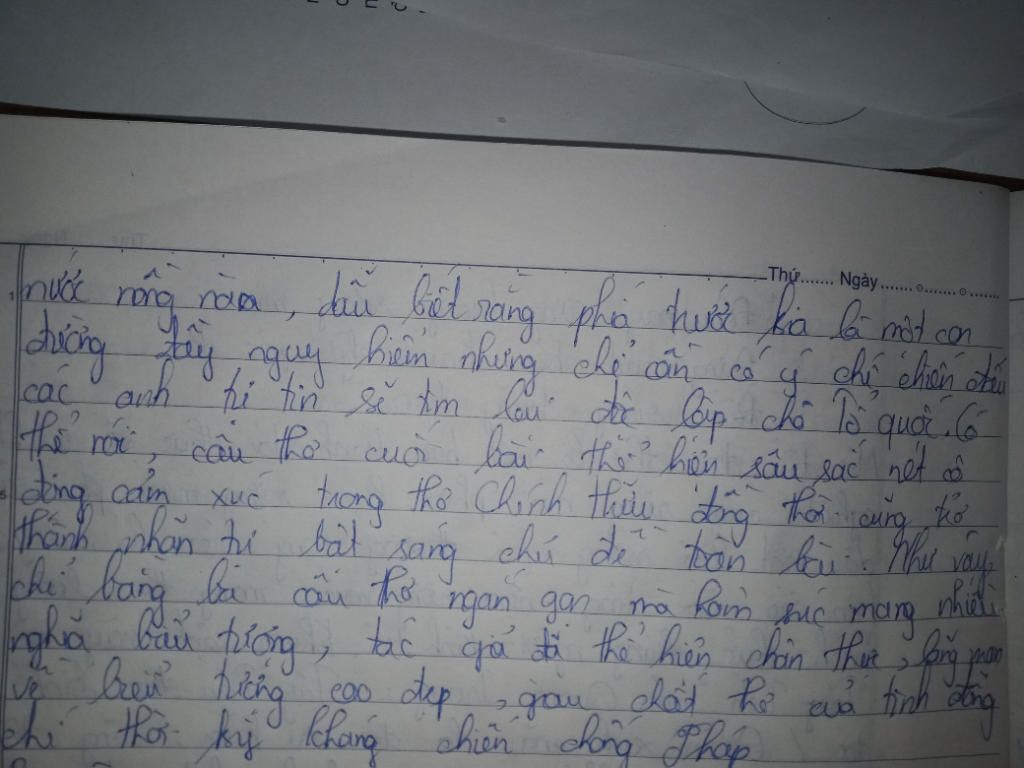 Thứ....... Ngày.......
nước nồng nàn, dẫu biết rằng phía trước kia là một con
đường đầy nguy hiểm nhưng chỉ cần có ý chí chiến đấu
các anh tự tin sẽ tìm lại độc lập cho Tổ quốc. Có
thể nói, câu thơ cuối bài thể hiện sâu sắc nét cô
đọng cảm xúc trong thơ Chính Hữu đồng thời cũng trở
thành nhãn tự bật sáng chủ đề toàn bài. Như vậy,
chỉ bằng ba câu thơ ngắn gọn mà hàm súc mang nhiều
nghĩa biểu tượng, tác giả đã thể hiện chân thực, lãng mạn
về biểu tượng cao đẹp, giàu chất thơ của tình đồng
chí thời kỳ kháng chiến chống Pháp